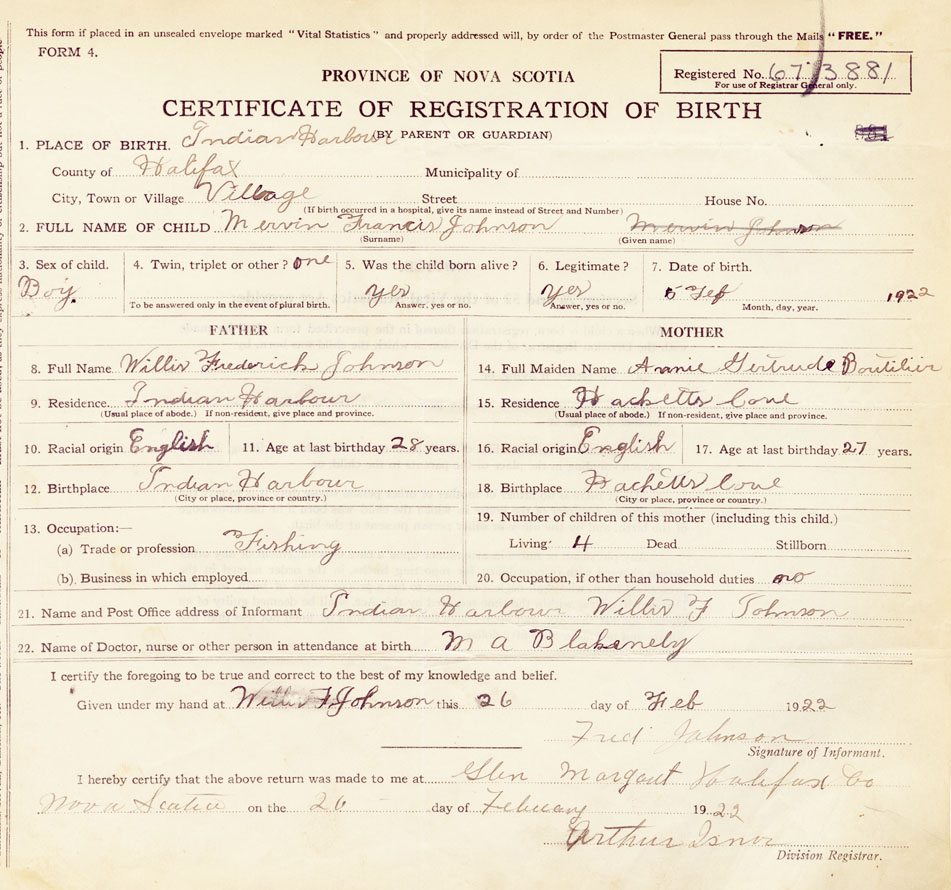 This form if placed in an unsealed envelope marked "Vital Statistics" and properly addressed will, by order of the Postmaster General pass through the Mails "FREE."
FORM 4.
Registered No. 67/3881
For use of Registrar General only.
PROVINCE OF NOVA SCOTIA
CERTIFICATE OF REGISTRATION OF BIRTH
(BY PARENT OR GUARDIAN)
1. PLACE OF BIRTH. Indian Harbour
County of Halifax Municipality of
City, Town or Village Village Street House No.
(If birth occurred in a hospital, give its name instead of Street and Number)
2. FULL NAME OF CHILD Mervin Francis Johnson Mervin Johnson
(Surname) (Given name)
3. Sex of child. 4. Twin, triplet or other? one 5. Was the child born alive? 6. Legitimate? 7. Date of birth.
Boy. yes yes 5 Feb 1922
To be answered only in the event of plural birth. Answer, yes or no. Answer, yes or no. Month, day, year.
FATHER MOTHER
8. Full Name Willis Frederick Johnson 14. Full Maiden Name Annie Gertrude Boutilier
9. Residence Indian Harbour 15. Residence Hacketts Cove
(Usual place of abode.) If non-resident, give place and province. (Usual place of abode.) If non-resident, give place and province.
10. Racial origin English 11. Age at last birthday 28 years. 16. Racial origin English 17. Age at last birthday 27 years.
12. Birthplace Indian Harbour 18. Birthplace Hacketts Cove
(City or place, province or country.) (City or place, province or country.)
13. Occupation:— 19. Number of children of this mother (including this child.)
(a) Trade or profession Fishing Living 4 Dead Stillborn
(b) Business in which employed 20. Occupation, if other than household duties no
21. Name and Post Office address of Informant Indian Harbour Willis F Johnson
22. Name of Doctor, nurse or other person in attendance at birth M A Blakenely
I certify the foregoing to be true and correct to the best of my knowledge and belief.
Given under my hand at Willis F Johnson this 26 day of Feb 1922
Fred Johnson
Signature of Informant.
I hereby certify that the above return was made to me at Glen Margaret Halifax Co
Nova Scotia on the 26 day of February 1922
Arthur Isnor
Division Registrar.